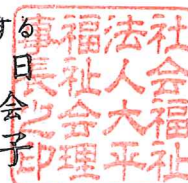 する
日会子
社会福祉
法人大平
福祉会理
事長之印